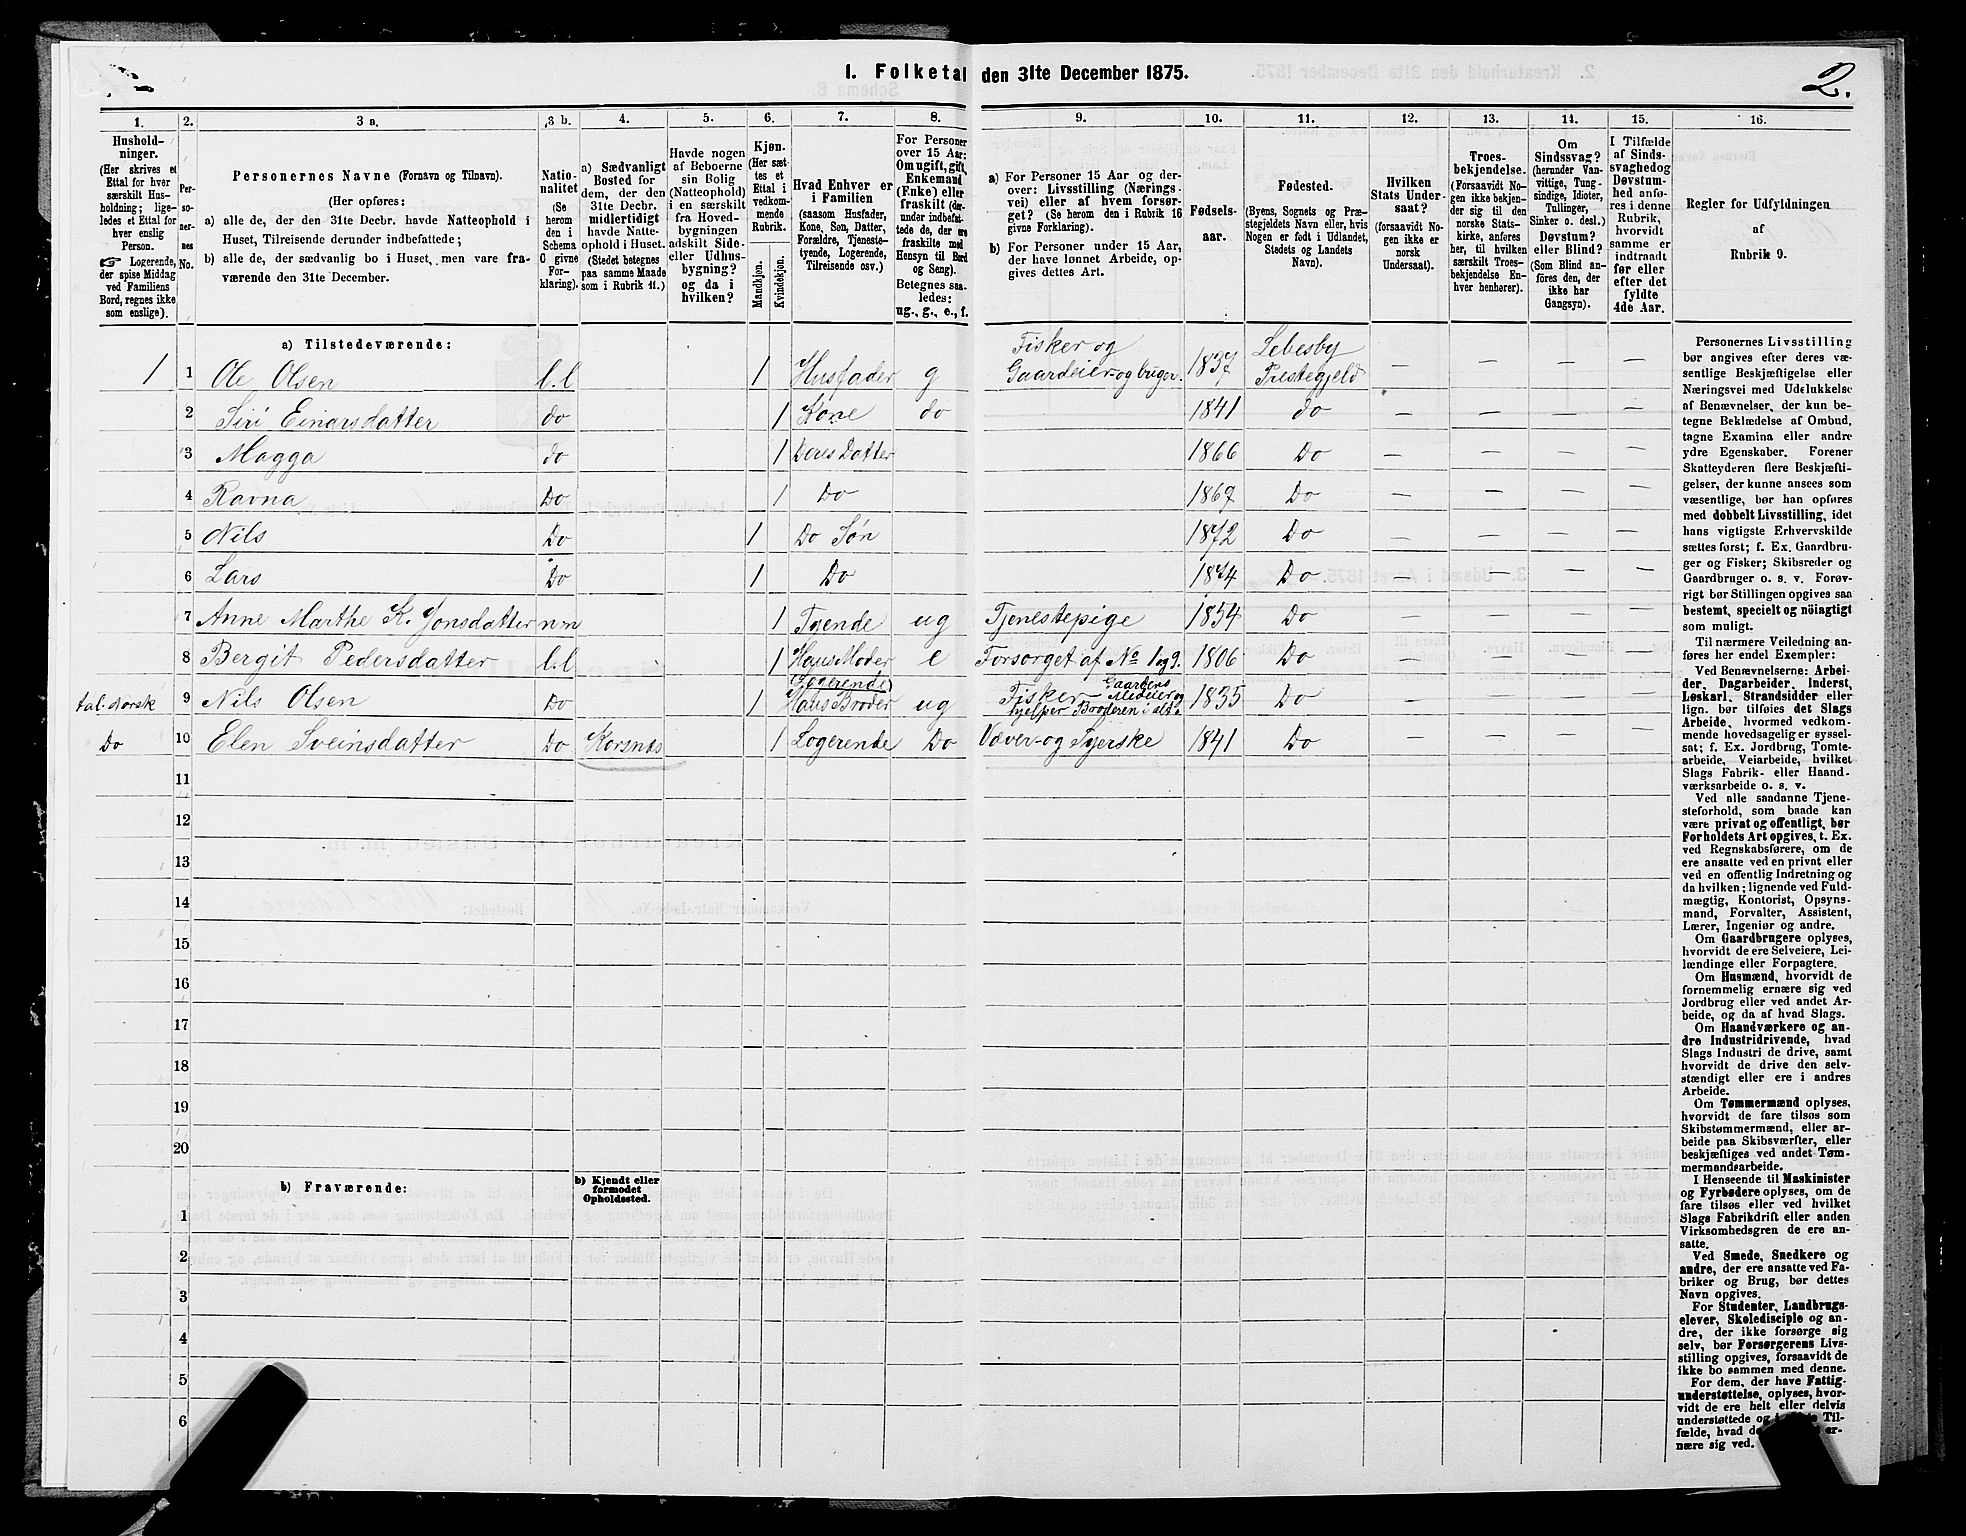 1. Folketal den 31te December 1875.
2.
1. 2. 3 a. 3 b. 4. 5. 6. 7. 8. 9. 10. 11. 12. 13. 14. 15. 16.
Hushold-
ninger.
(Her skrives et
Ettal for hver
særskilt Hus-
holdning; lige-
ledes et Ettal for
hver enslig
Person.
☞ Logerende,
der spise Middag
ved Familiens
Bord, regnes ikke
som enslige).
Per-
so-
ner-
nes
No.
Personernes Navne (Fornavn og Tilnavn).
(Her opføres:
a) alle de, der den 31te Decbr. havde Natteophold i
Huset, Tilreisende derunder indbefattede;
b) alle de, der sædvanlig bo i Huset, men vare fra-
værende den 31te December.
Natio-
nalitet
(Se
herom
den i
Schema
C givne
For-
klaring).
a) Sædvanligt
Bosted for
dem, der den
31te Decbr.
midlertidigt
havde Natte-
ophold i Huset.
(Stedet betegnes
paa samme Maade
som i Rubrik 11.)
Havde nogen
af Beboerne
sin Bolig
(Natteophold)
i en særskilt
fra Hoved-
bygningen
adskilt Side-
eller Udhus-
bygning?
og da i
hvilken?
Kjøn.
(Her sæt-
tes et
Ettal i
vedkom-
mende
Rubrik.
Mandkjøn.
Kvindekjøn.
Hvad Enhver er
i Familien
(saasom Husfader,
Kone, Søn, Datter,
Forældre, Tjeneste-
tyende, Logerende,
Tilreisende osv.)
For Personer
over 15 Aar:
Om ugift, gift,
Enkemand
(Enke) eller
fraskilt (der-
under indbefat-
tede de, der ere
fraskilte med
Hensyn til Bord
og Seng).
Betegnes saa-
ledes:
ug., g., e., f.
a) For Personer 15 Aar og der-
over: Livsstilling (Nærings-
vei) eller af hvem forsør-
get? (Se herom den i Rubrik 16
givne Forklaring).
b) For Personer under 15 Aar,
der have lønnet Arbeide, op-
gives dettes Art.
Fødsels-
aar.
Fødested.
(Byens, Sognets og Præ-
stegjeldets Navn eller, hvis
Nogen er født i Udlandet,
Stedets og Landets
Navn).
Hvilken
Stats Under-
saat?
(forsaavidt No-
gen ikke er
norsk
Undersaat).
Troes-
bekjendelse.
(Forsaavidt No-
gen ikke bekjen-
der sig til den
norske Stats-
kirke, anføres
her, til hvilken
særskilt Troes-
bekjendelse En-
hver henhører).
Om
Sindssvag?
(herunder Van-
vittige, Tung-
sindige, Idioter,
Tullinger,
Sinker o. desl.)
Døvstum?
eller Blind?
(Som Blind an-
føres den, der
ikke har
Gangsyn).
I Tilfælde
af Sinds-
svaghed og
Døvstum-
hed anfø-
res i denne
Rubrik,
hvorvidt
samme er
indtraadt
før eller
efter det
fyldte
4de Aar.
Regler for Udfyldningen
af
Rubrik 9.
a) Tilstedeværende:
1 1 Ole Olsen l.l 1 Husfader g Fisker og Gaardeier og bruger. 1837 Lebesby Prestegjeld — — — —
2 Siri Einarsdatter do 1 Kone do 1841 do — — — —
3 Magga do 1 Deres Datter 1866 Do — — — —
4 Ravna Do 1 Do 1867 Do — — — —
5 Nils Do 1 Do Søn 1872 Do — — — —
6 Lars Do 1 Do 1874 Do — — — —
7 Anne Marthe K. Jonsdatter n.n 1 Tyende ug Tjenestepige 1854 Do — — — —
8 Bergit Pedersdatter l.l 1 Hans Moder e Forsorget af No 1 og 9. 1806 Do — — — —
tal. norsk 9 Nils Olsen Do 1 (Logerende) Hans Broder ug Fisker Gaardens Medeier og hjelper Broderen i alt. 1835 Do — — — —
Do 10 Elen Sveinsdatter Do Korsnes 1 Logerende Do Væver- og Syerske 1841 Do — — — —
11
12
13
14
15
16
17
18
19
20
b) Fraværende:
b) Kjendt eller
formodet
Opholdssted.
1
2
3
4
5
6
Personernes Livsstilling
bør angives efter deres væ-
sentlige Beskjæftigelse eller
Næringsvei med Udelukkelse
af Benævnelser, der kun be-
tegne Beklædelse af Ombud,
tagne Examina eller andre
ydre Egenskaber. Forener
Skatteyderen flere Beskjæfti-
gelser, der kunne ansees som
væsentlige, bør han opføres
med dobbelt Livsstilling, idet
hans vigtigste Erhvervskilde
sættes først; f. Ex. Gaardbru-
ger og Fisker; Skibsreder og
Gaardbruger o. s. v. Forøv-
rigt bør Stillingen opgives saa
bestemt, specielt og nöiagtigt
som muligt.
Til nærmere Veiledning an-
føres her endel Exempler:
Ved Benævnelserne: Arbei-
der, Dagarbeider, Inderst,
Løskarl, Strandsidder eller
lign. bør tilføies det Slags
Arbeide, hvormed vedkom-
mende hovedsagelig er syssel-
sat; f. Ex. Jordbrug, Tomte-
arbeide, Veiarbeide, hvilket
Slags Fabrik- eller Haand-
værksarbeide o. s. v.
Ved alle saadanne Tjene-
steforhold, som baade kan
være privat og offentligt, bør
Forholdets Art opgives, t. Ex.
ved Regnskabsførere, om de
ere ansatte ved en privat eller
ved en offentlig Indretning og
da hvilken; lignende ved Fuld-
mægtig, Kontorist, Opsyns-
mand, Forvalter, Assistent,
Lærer, Ingeniør og andre.
Om Gaardbrugere oplyses,
hvorvidt de ere Selveiere, Lei-
lændinge eller Forpagtere.
Om Husmænd, hvorvidt de
fornemmelig ernære sig ved
Jordbrug eller ved andet Ar-
beide, og da af hvad Slags.
Om Haandværkere og an-
dre Industridrivende, hvad
Slags Industri de drive, samt
hvorvidt de drive den selv-
stændigt eller ere i andres
Arbeide.
Om Tømmermænd oplyses,
hvorvidt de fare tilsøs som
Skibstømmermænd, eller ar-
beide paa Skibsværfter, eller
beskjæftiges ved andet Tøm-
mermandsarbeide.
I Henseende til Maskinister
og Fyrbødere oplyses, om de
fare tilsøs eller ved hvilket
Slags Fabrikdrift eller anden
Virksomhedsgren de ere an-
satte.
Ved Smede, Snedkere og
andre, der ere ansatte ved Fa-
briker og Brug, bør dettes
Navn opgives.
For Studenter, Landbrugs-
elever, Skoledisciple og an-
dre, der ikke forsørge sig
selv, bør Forsørgerens Livs-
stilling opgives, forsaavidt de
ikke bo sammen med denne.
For dem, der have Fattig-
understøttelse, oplyses, hvor-
vidt de ere helt eller delvis
understøttede og Til-
fælde, hvad er-
nære sig ved.